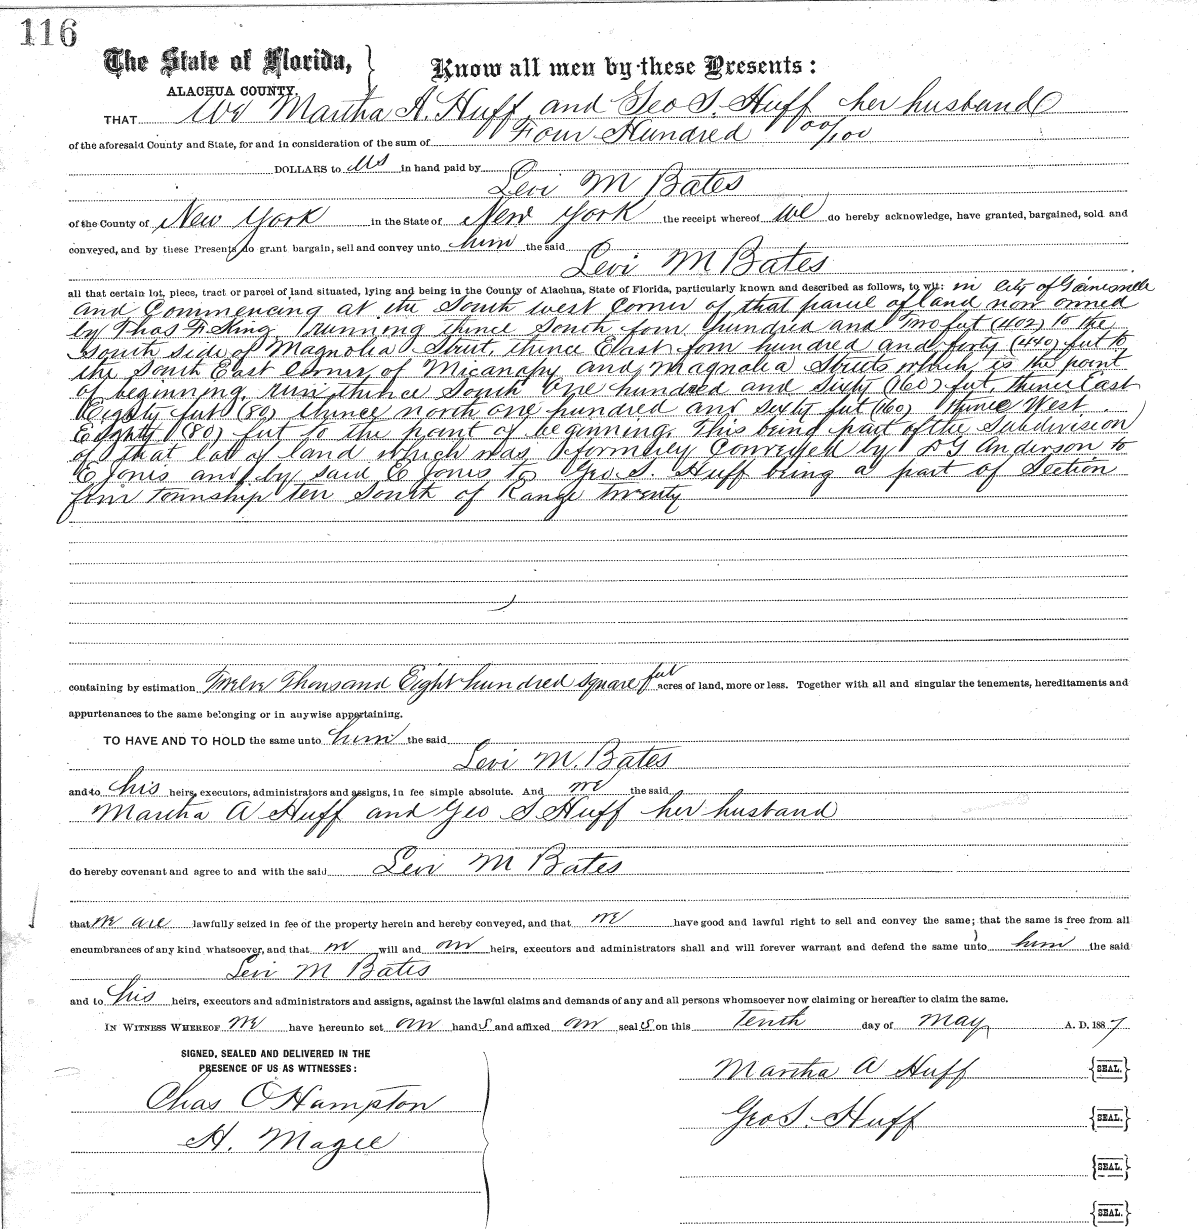 116
The State of Florida, } Know all men by these Presents:
ALACHUA COUNTY.
THAT We Martha A. Huff and Geo S. Huff her husband
of the aforesaid County and State, for and in consideration of the sum of Four Hundred 00/100
DOLLARS to us in hand paid by
Levi M Bates
of the County of New York in the State of New York the receipt whereof we do hereby acknowledge, have granted, bargained, sold and
conveyed, and by these Presents do grant bargain, sell and convey unto him the said
Levi M Bates
all that certain lot, piece, tract or parcel of land situated, lying and being in the County of Alachua, State of Florida, particularly known and described as follows, to wit: in city of Gainesville
and Commencing at the South west Corner of that parcel of land now owned
by Thos F. King running thence South four hundred and Two feet (402) to the
South side of Magnolia Street, thence East four hundred and forty (440) feet to
the South East Corner of Micanopy and Magnolia Streets which is the point
of beginning, run thence South One hundred and sixty (160) feet, thence East
Eighty feet (80) thence north one hundred and sixty feet (160) thence West
Eighty (80) feet to the point of beginning. This being part of the Subdivision
of that lot of land which was formerly Conveyed by D G Anderson to
E Jones and by said E Jones to Geo S. Huff being a part of Section
four Township ten South of Range twenty
containing by estimation Twelve Thousand Eight hundred square feet acres of land, more or less. Together with all and singular the tenements, hereditaments and
appurtenances to the same belonging or in anywise appertaining.
TO HAVE AND TO HOLD the same unto him the said
Levi M. Bates
and to his heirs, executors, administrators and assigns, in fee simple absolute. And we the said
Martha A Huff and Geo S Huff her husband
do hereby covenant and agree to and with the said Levi M Bates
that we are lawfully seized in fee of the property herein and hereby conveyed, and that we have good and lawful right to sell and convey the same; that the same is free from all
encumbrances of any kind whatsoever, and that we will and our heirs, executors and administrators shall and will forever warrant and defend the same unto him the said
Levi M Bates
and to his heirs, executors and administrators and assigns, against the lawful claims and demands of any and all persons whomsoever now claiming or hereafter to claim the same.
IN WITNESS WHEREOF we have hereunto set our hands and affixed our seals on this Tenth day of May A. D. 1887
SIGNED, SEALED AND DELIVERED IN THE
PRESENCE OF US AS WITNESSES:
Chas O Hampton
H. Magee
Martha A Huff {SEAL.}
Geo S. Huff {SEAL.}
{SEAL.}
{SEAL.}